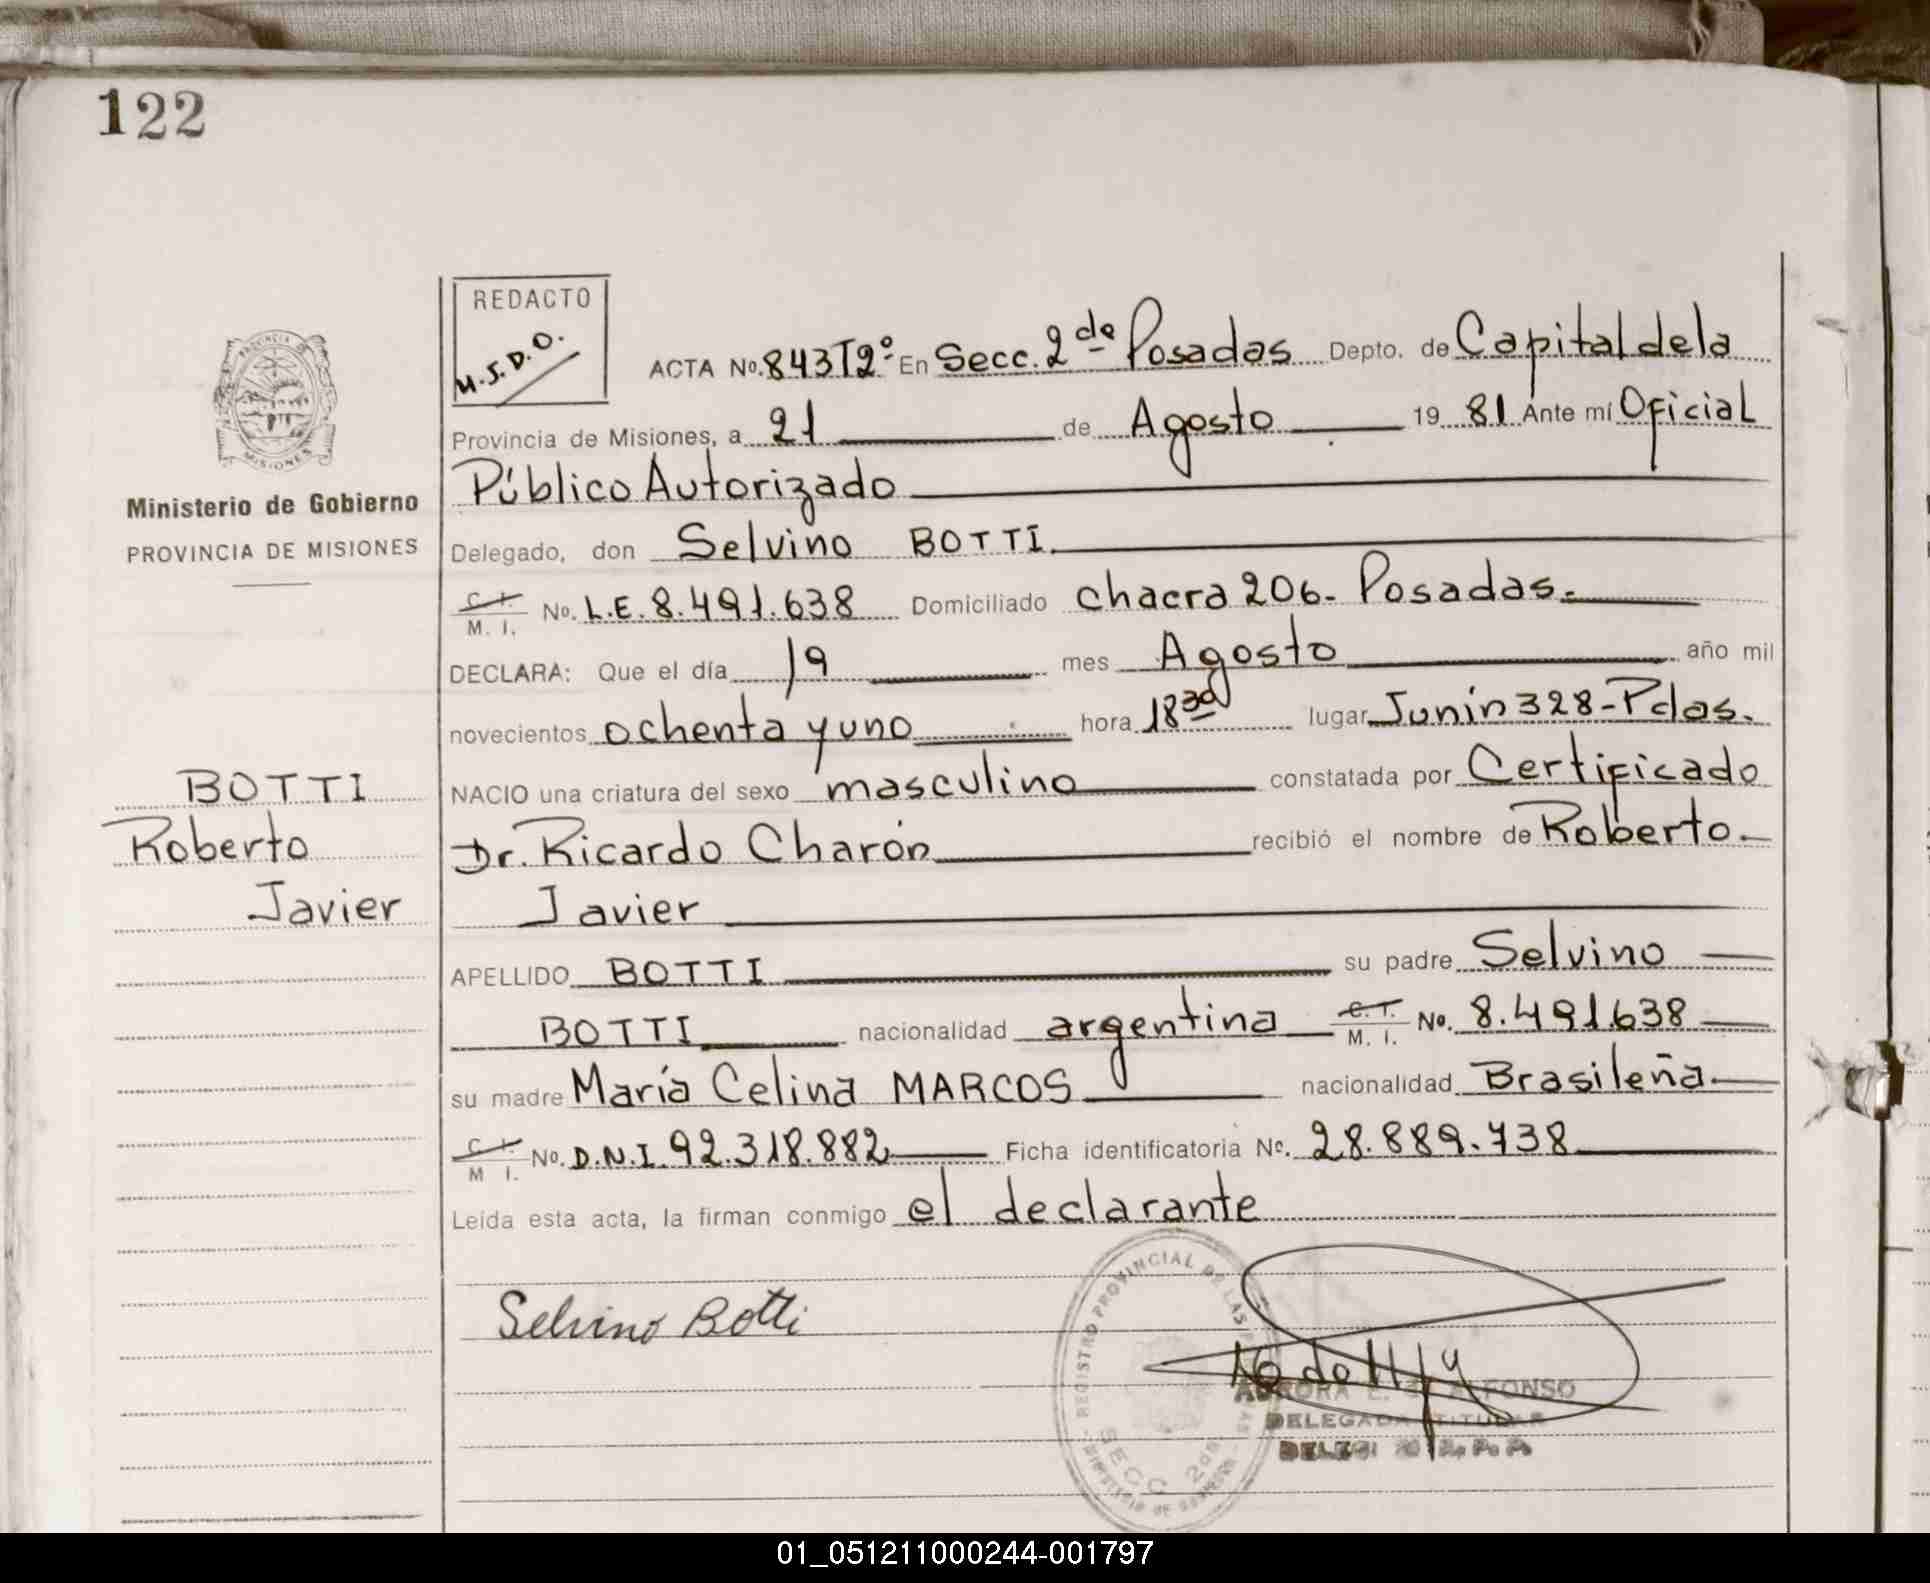 122
REDACTO
M.S.D.O.
PROVINCIA DE
MISIONES
Ministerio de Gobierno
PROVINCIA DE MISIONES
ACTA No. 843 T2º En Secc. 2da Posadas Depto. de Capital de la
Provincia de Misiones, a 21 de Agosto 19 81 Ante mí Oficial
Público Autorizado
Delegado, don Selvino BOTTI.
C. I. / M. I. No. L.E. 8.491.638 Domiciliado chacra 206- Posadas.-
DECLARA: Que el día 19 mes Agosto año mil
novecientos ochenta y uno hora 18 30 lugar Junín 328-Pdas.
NACIO una criatura del sexo masculino constatada por Certificado
Dr. Ricardo Charón recibió el nombre de Roberto
Javier
APELLIDO BOTTI su padre Selvino
BOTTI nacionalidad argentina C. I. / M. I. No. 8.491.638
su madre María Celina MARCOS nacionalidad Brasileña
C. I. / M I. No. D.N.I. 92.318.882 Ficha identificatoria No. 28.889.738
Leída esta acta, la firman conmigo el declarante
BOTTI
Roberto
Javier
Selvino Botti
REGISTRO PROVINCIAL DE LAS
SECC 2da
ALFONSO
DELEGADA TITULAR
01_051211000244-001797